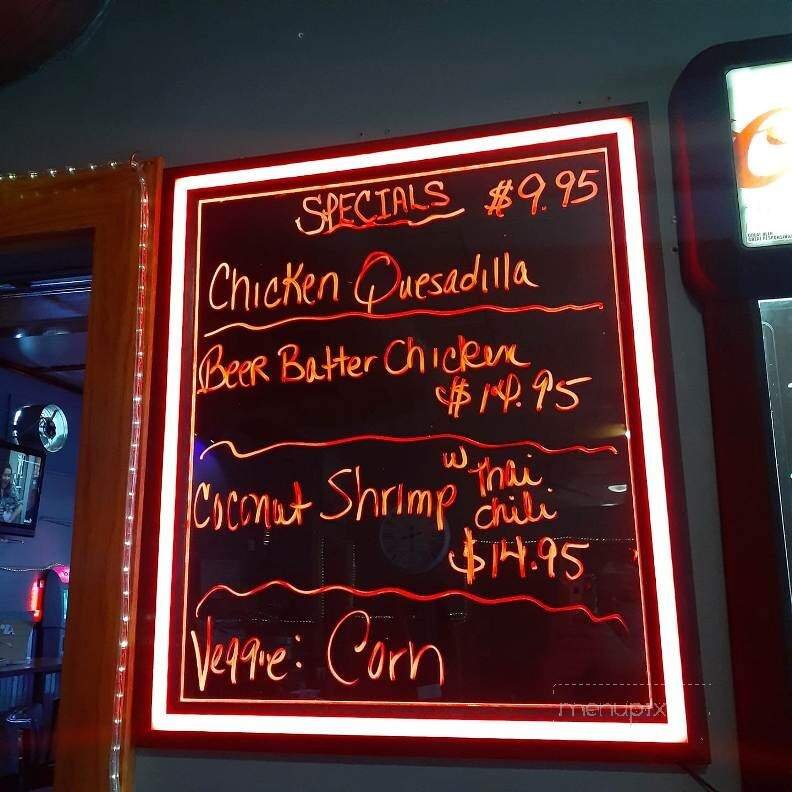 SPECIALS $9.95
Chicken Quesadilla
Beer Batter Chicken
$14.95
Coconut Shrimp w Thai
chili
$14.95
Veggie: Corn
menupix